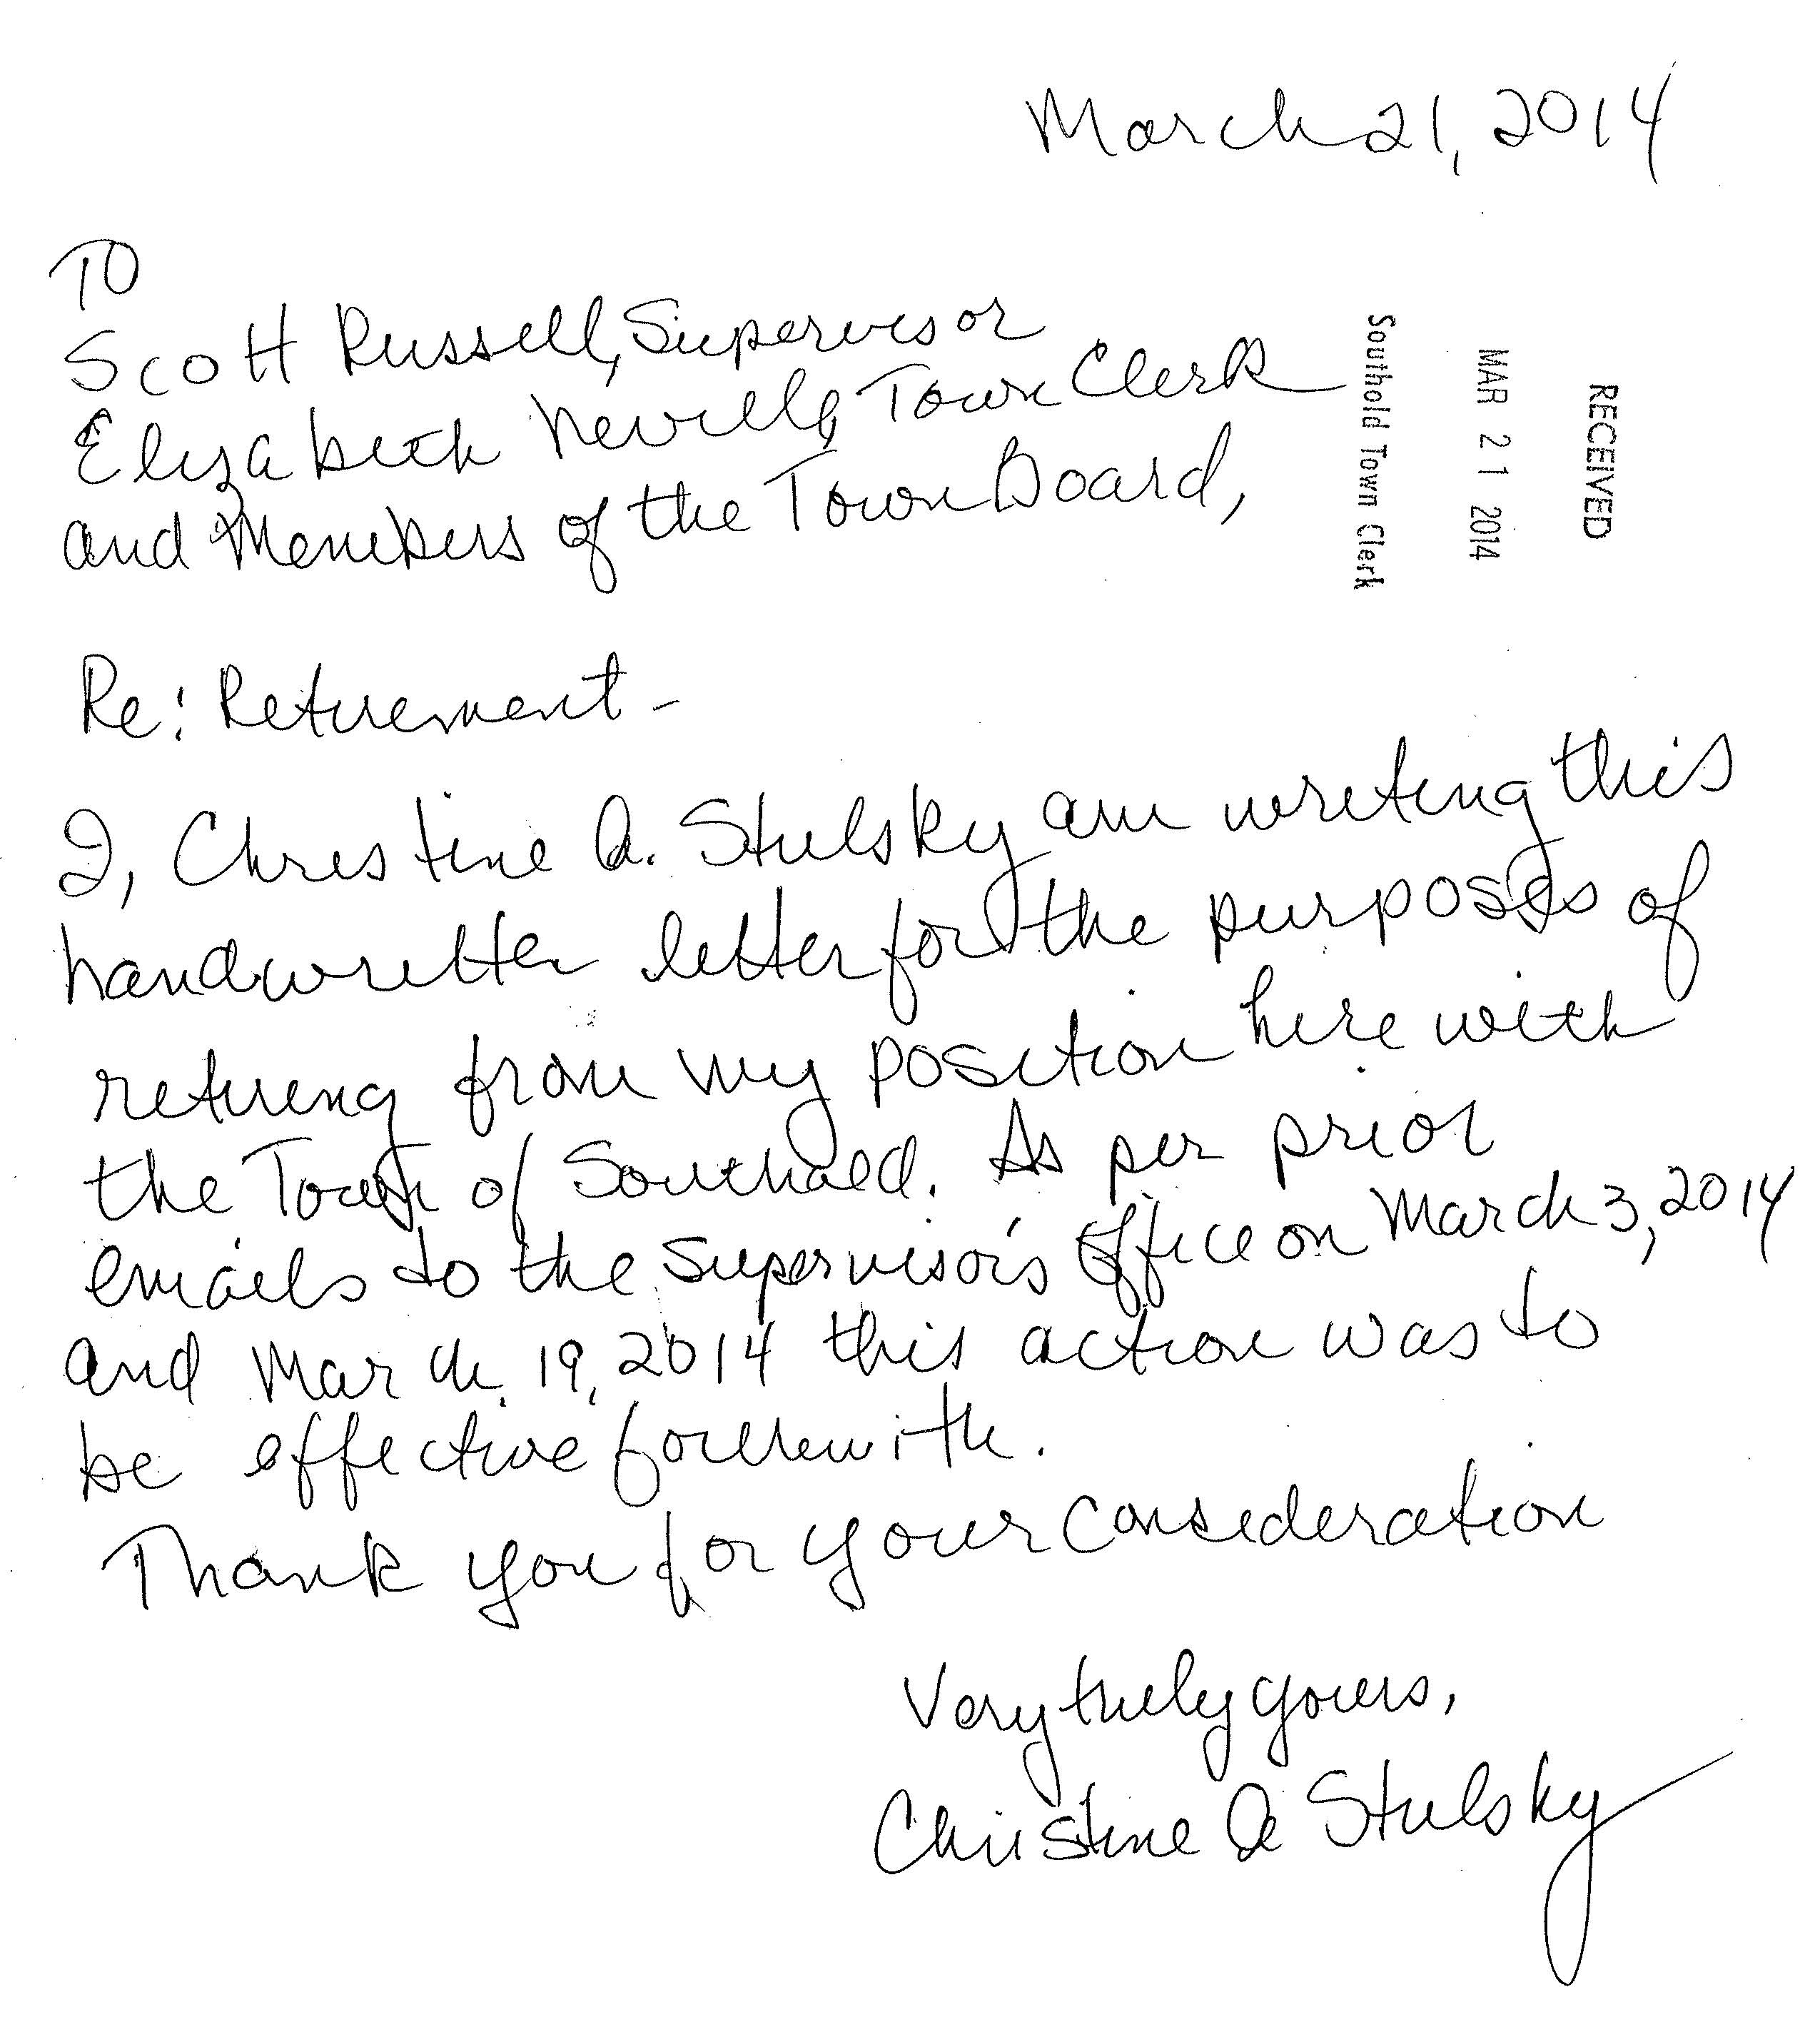 March 21, 2014
TO
Scott Russell, Supervisor
Elizabeth Neville, Town Clerk
and Members of the Town Board,
RECEIVED
MAR 21 2014
Southold Town Clerk
Re: Retirement -
I, Christine A. Stulsky am writing this
handwritten letter for the purposes of
retiring from my position here with
the Town of Southold. As per prior
emails to the Supervisor's Office on March 3, 2014
and March 19, 2014 this action was to
be effective forthwith.
Thank you for your consideration
Very truly yours,
Christine A Stulsky